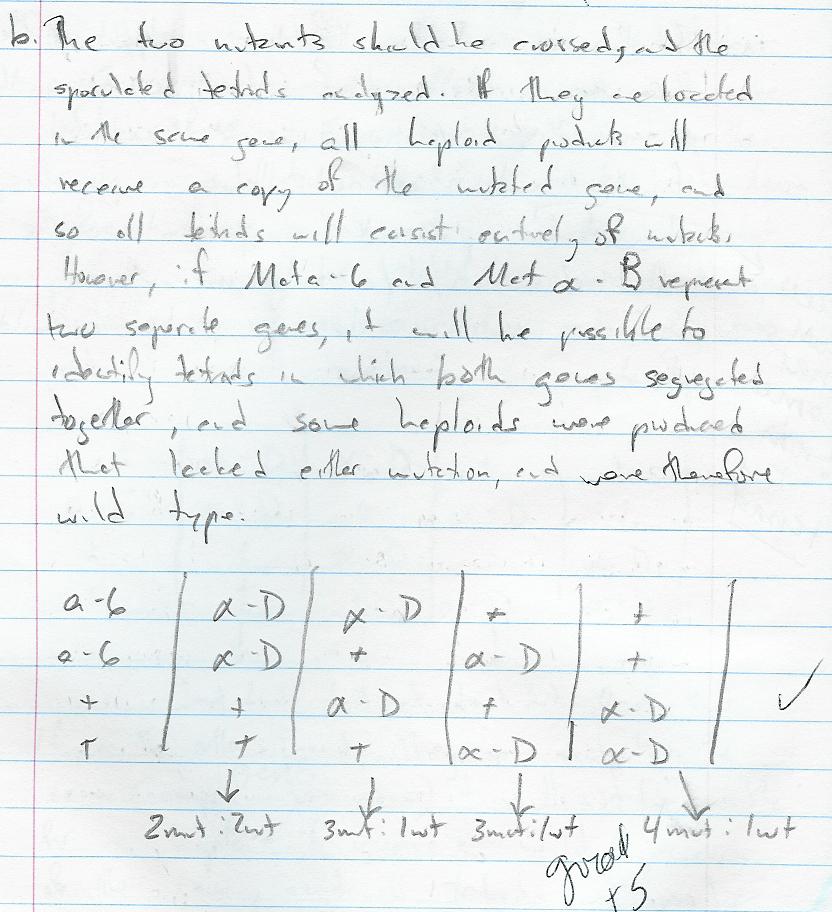 b. The two mutants should be crossed, and the
sporulated tetrads analyzed. If they are located
in the same gene, all haploid products will
receive a copy of the mutated gene, and
so all tetrads will consist entirely of mutants.
However, if Mat a-6 and Mat α-B represent
two separate genes, it will be possible to
identify tetrads in which both genes segregated
together, and some haploids were produced
that lacked either mutation, and were therefore
wild type.
a-6 | α-D | α-D | + | +
a-6 | α-D | + | α-D | +
+ | + | α-D | + | α-D ✓
+ | + | + | α-D | α-D
↓ ↓ ↓ ↓
2mut:2wt 3mut:1wt 3mut:1wt 4mut:1wt
good
+5